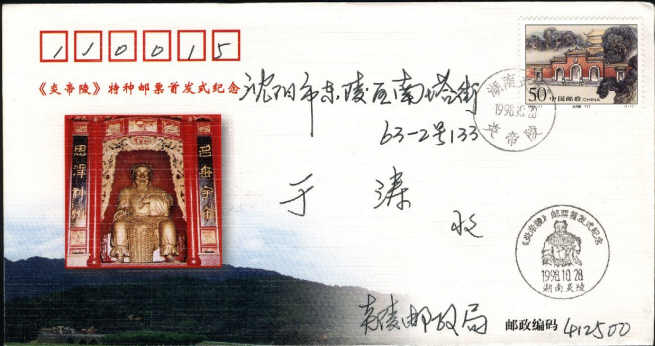 110015
《炎帝陵》特种邮票首发式纪念
沈阳市东陵区南塔街
63-2号133
于涛
收
50分
中国邮政 CHINA
湖南
1998.10.28
炎帝陵
《炎帝陵》邮票首发式纪念
1998.10.28
湖南炎陵
炎陵邮政局
邮政编码 412500